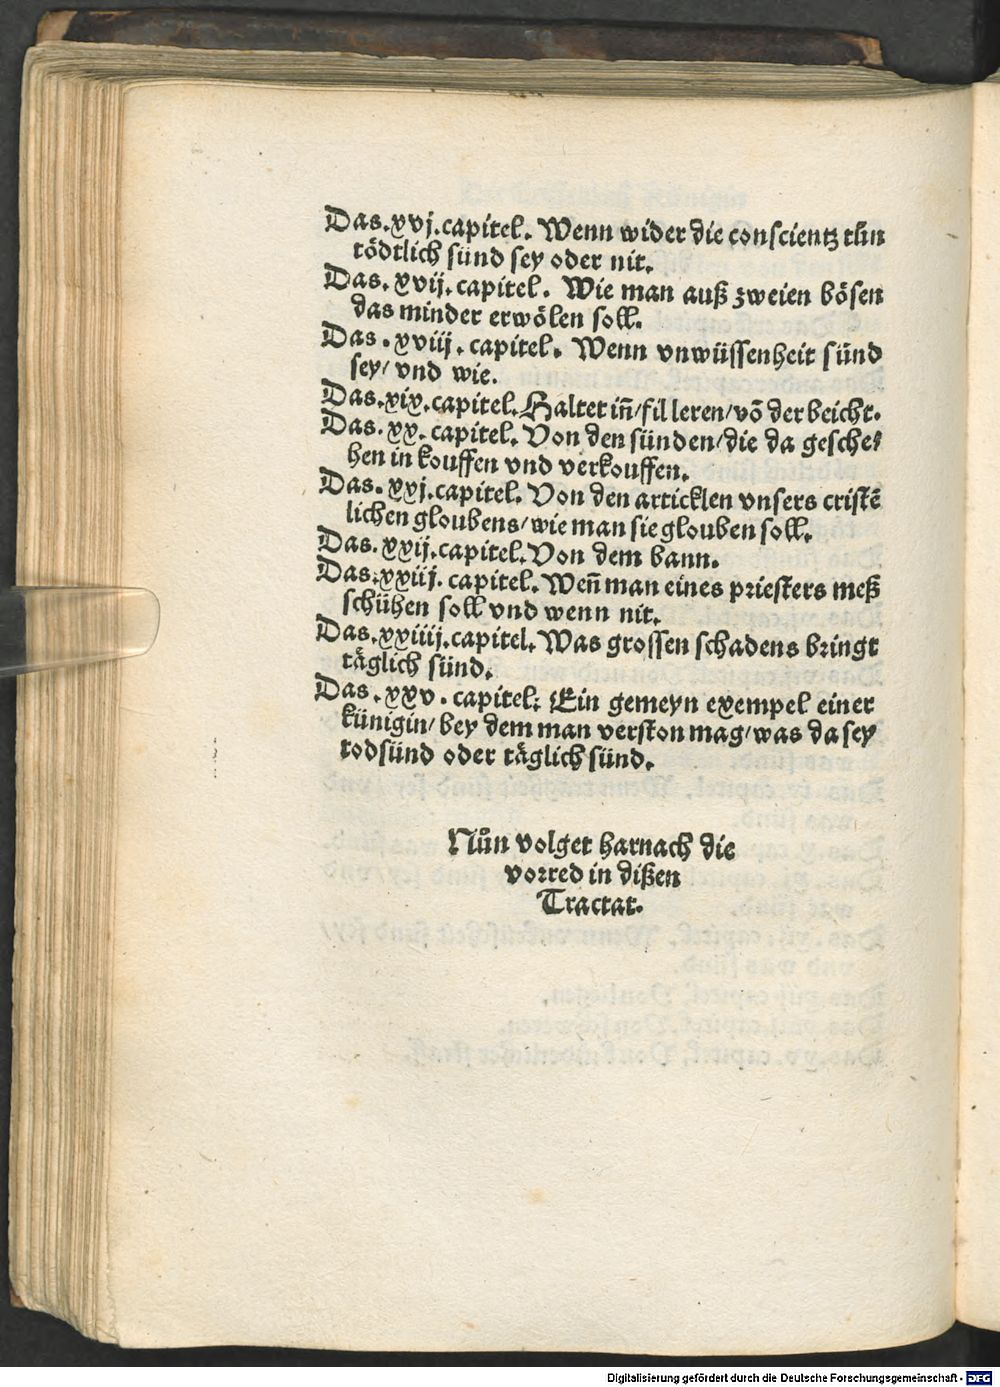 Das.xvj.capitel. Wenn wider die conscientz tůn
tödtlich sünd sey oder nit.
Das. xvij. capitel. Wie man auß zweien bösen
das minder erwölen soll.
Das. xviij. capitel. Wenn vnwüssenheit sünd
sey/ vnd wie.
Das.xix.capitel. Haltet iñ/ fil leren/ võ der beicht.
Das. xx. capitel. Von den sünden/ die da gesche⸗
hen in kouffen vnd verkouffen.
Das. xxj.capitel. Von den articklen vnsers cristẽ
lichen gloubens/ wie man sie glouben soll.
Das. xxij.capitel. Von dem bann.
Das.xxiij. capitel. Weñ man eines priesters meß
schühen soll vnd wenn nit.
Das.xxiiij.capitel. Was grossen schadens bringt
täglich sünd.
Das .xxv. capitel: Ein gemeyn exempel einer
künigin/ bey dem man verston mag/ was da sey
todsünd oder täglich sünd.
Nůn volget harnach die
vorred in dißen
Tractat.
Digitalisierung gefördert durch die Deutsche Forschungsgemeinschaft - DFG